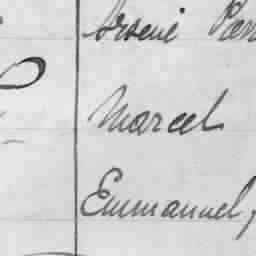 Arsene
Marcel
Emmanuel,